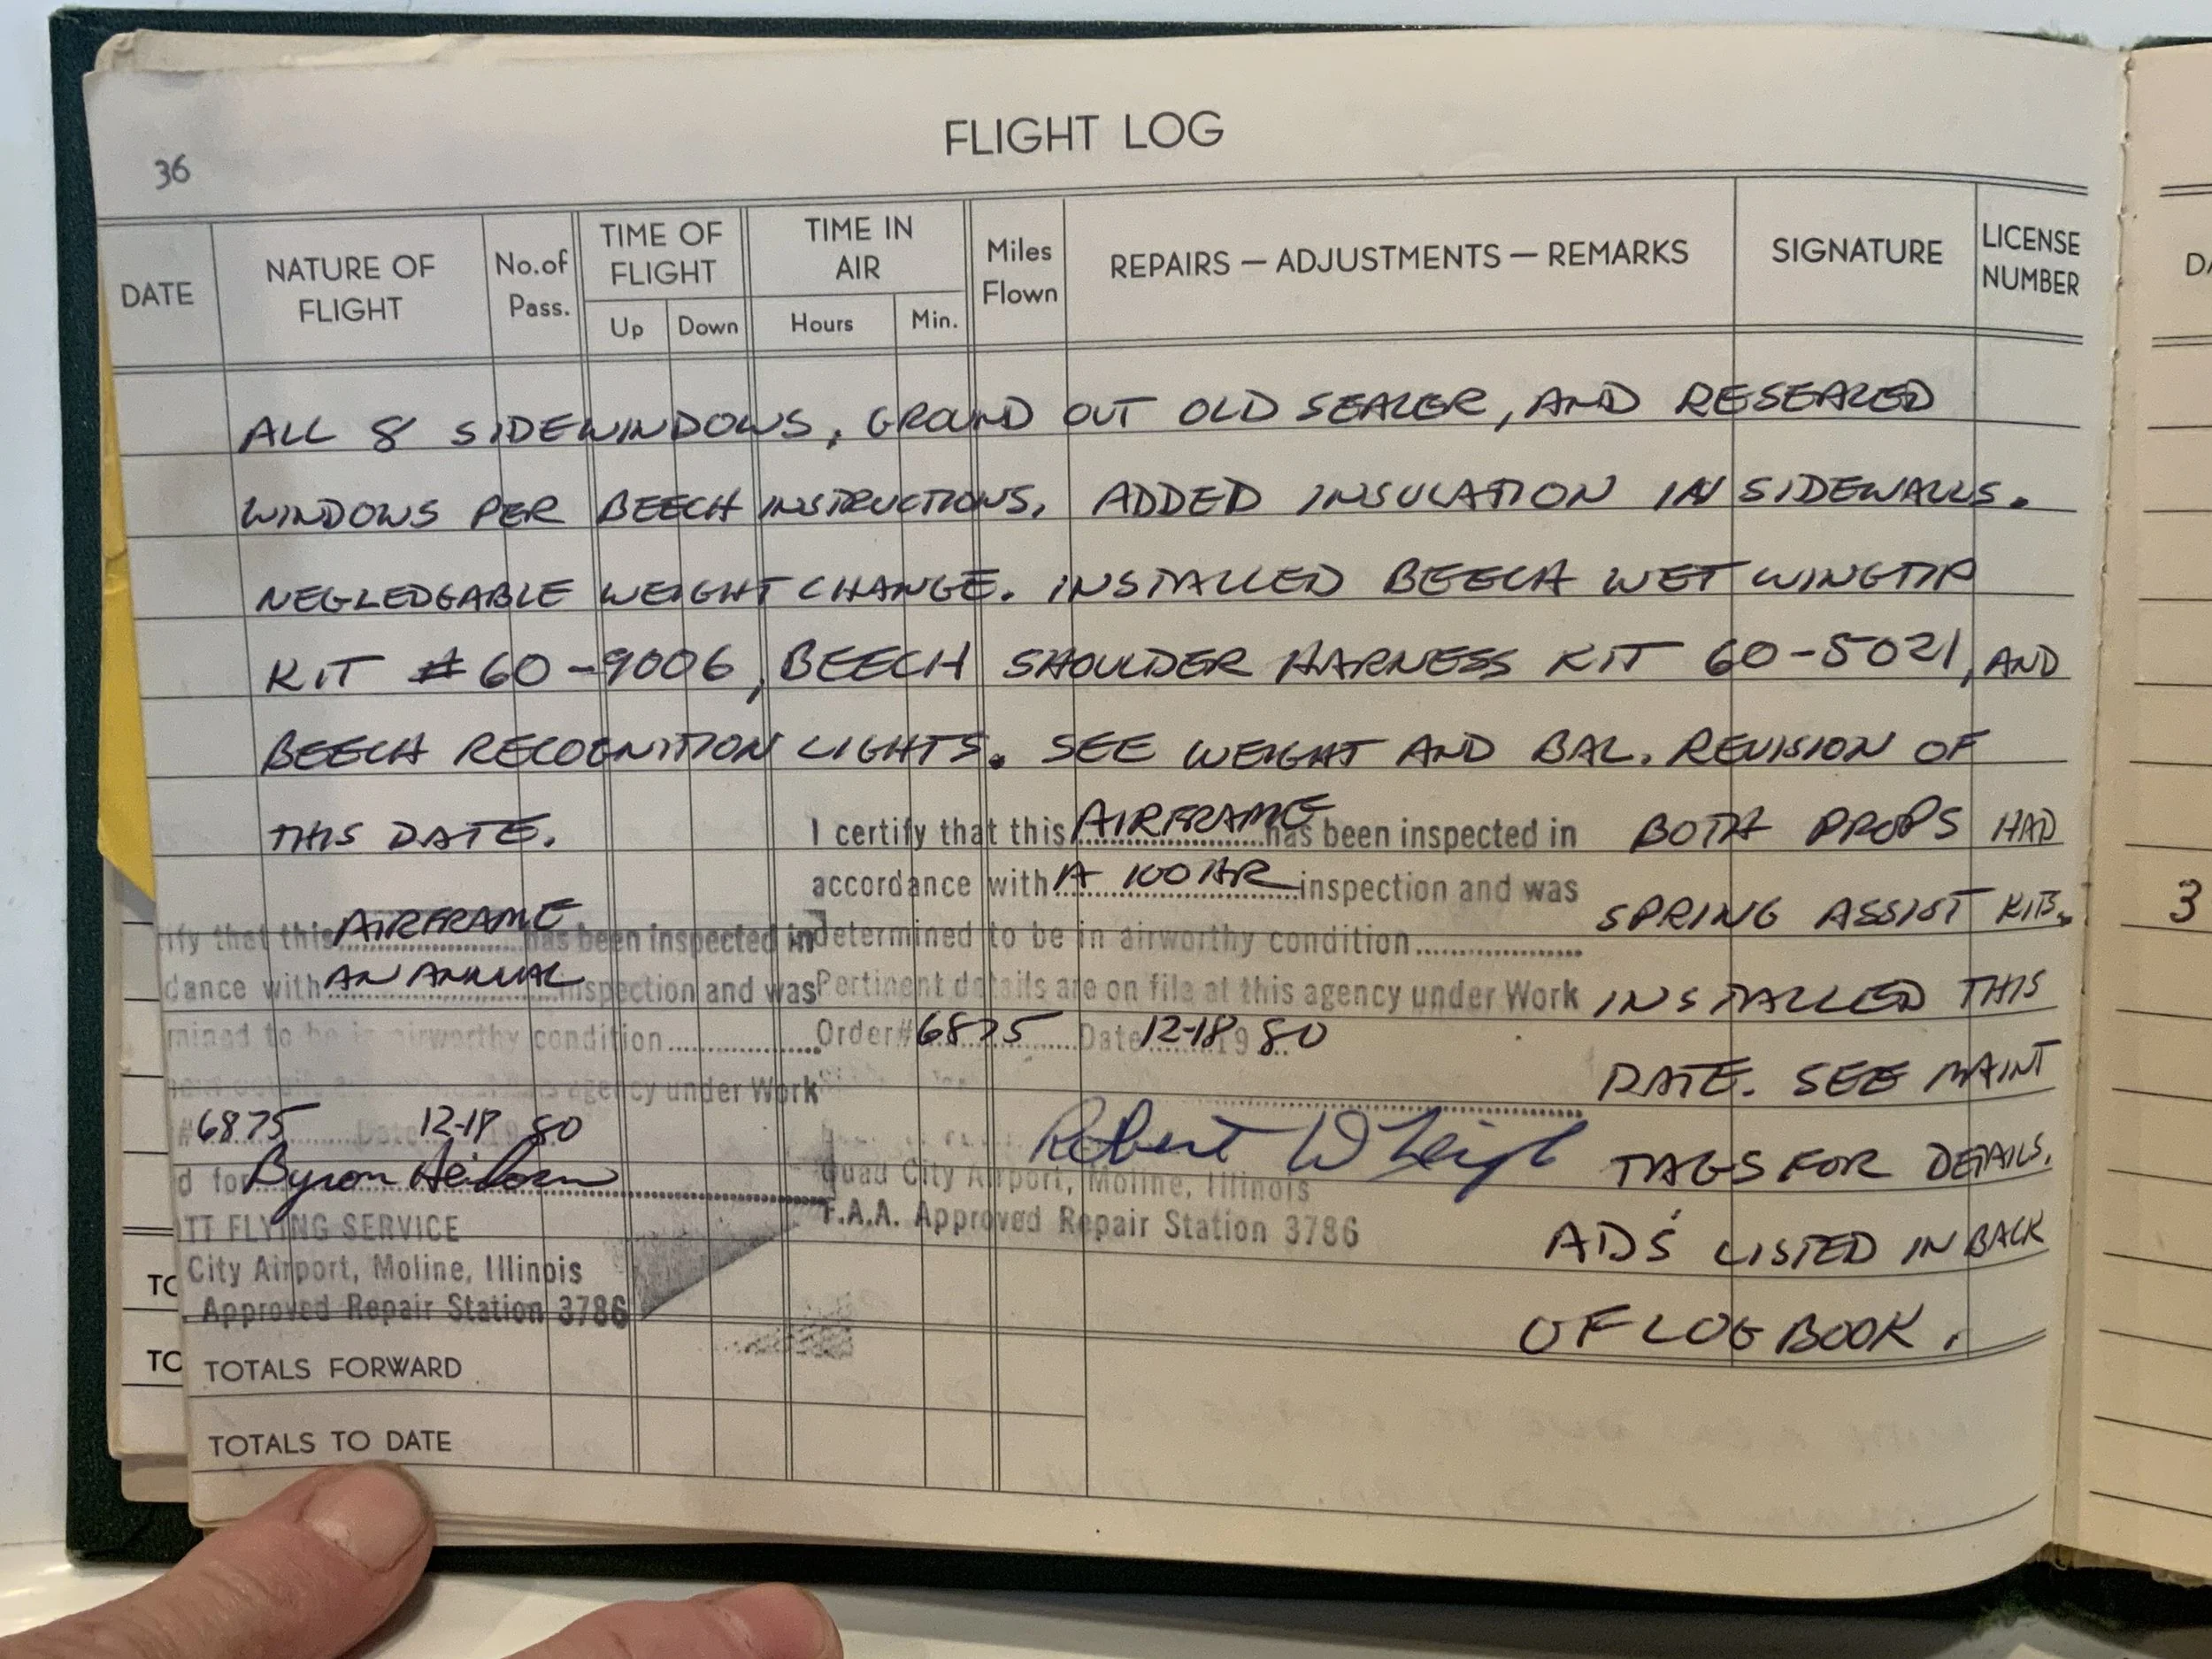 36
FLIGHT LOG
DATE NATURE OF FLIGHT No.of Pass. TIME OF FLIGHT Up Down TIME IN AIR Hours Min. Miles Flown REPAIRS — ADJUSTMENTS — REMARKS SIGNATURE LICENSE NUMBER
ALL 8 SIDEWINDOWS, GROUND OUT OLD SEALER, AND RESEALED
WINDOWS PER BEECH INSTRUCTIONS. ADDED INSULATION IN SIDEWALLS.
NEGLEDGABLE WEIGHT CHANGE. INSTALLED BEECH WET WINGTIP
KIT # 60-9006, BEECH SHOULDER HARNESS KIT 60-5021, AND
BEECH RECOGNITION LIGHTS. SEE WEIGHT AND BAL. REVISION OF
THIS DATE.
ify that this AIRFRAME has been inspected in
dance with AN ANNUAL inspection and was
mined to be in airworthy condition
agency under Work
# 6875 Date 12-18 19 80
d for Byron
TT FLYING SERVICE
City Airport, Moline, Illinois
Approved Repair Station 3786
I certify that this AIRFRAME has been inspected in
accordance with A 100 HR inspection and was
determined to be in airworthy condition
Pertinent details are on file at this agency under Work
Order# 6875 Date 12-18 19 80
Robert W Leigh
Quad City Airport, Moline, Illinois
F.A.A. Approved Repair Station 3786
BOTH PROPS HAD
SPRING ASSIST KITS
INSTALLED THIS
DATE. SEE MAINT
TAGS FOR DETAILS.
AD'S LISTED IN BACK
OF LOG BOOK.
TOTALS FORWARD
TOTALS TO DATE
TO
TO
DA
3